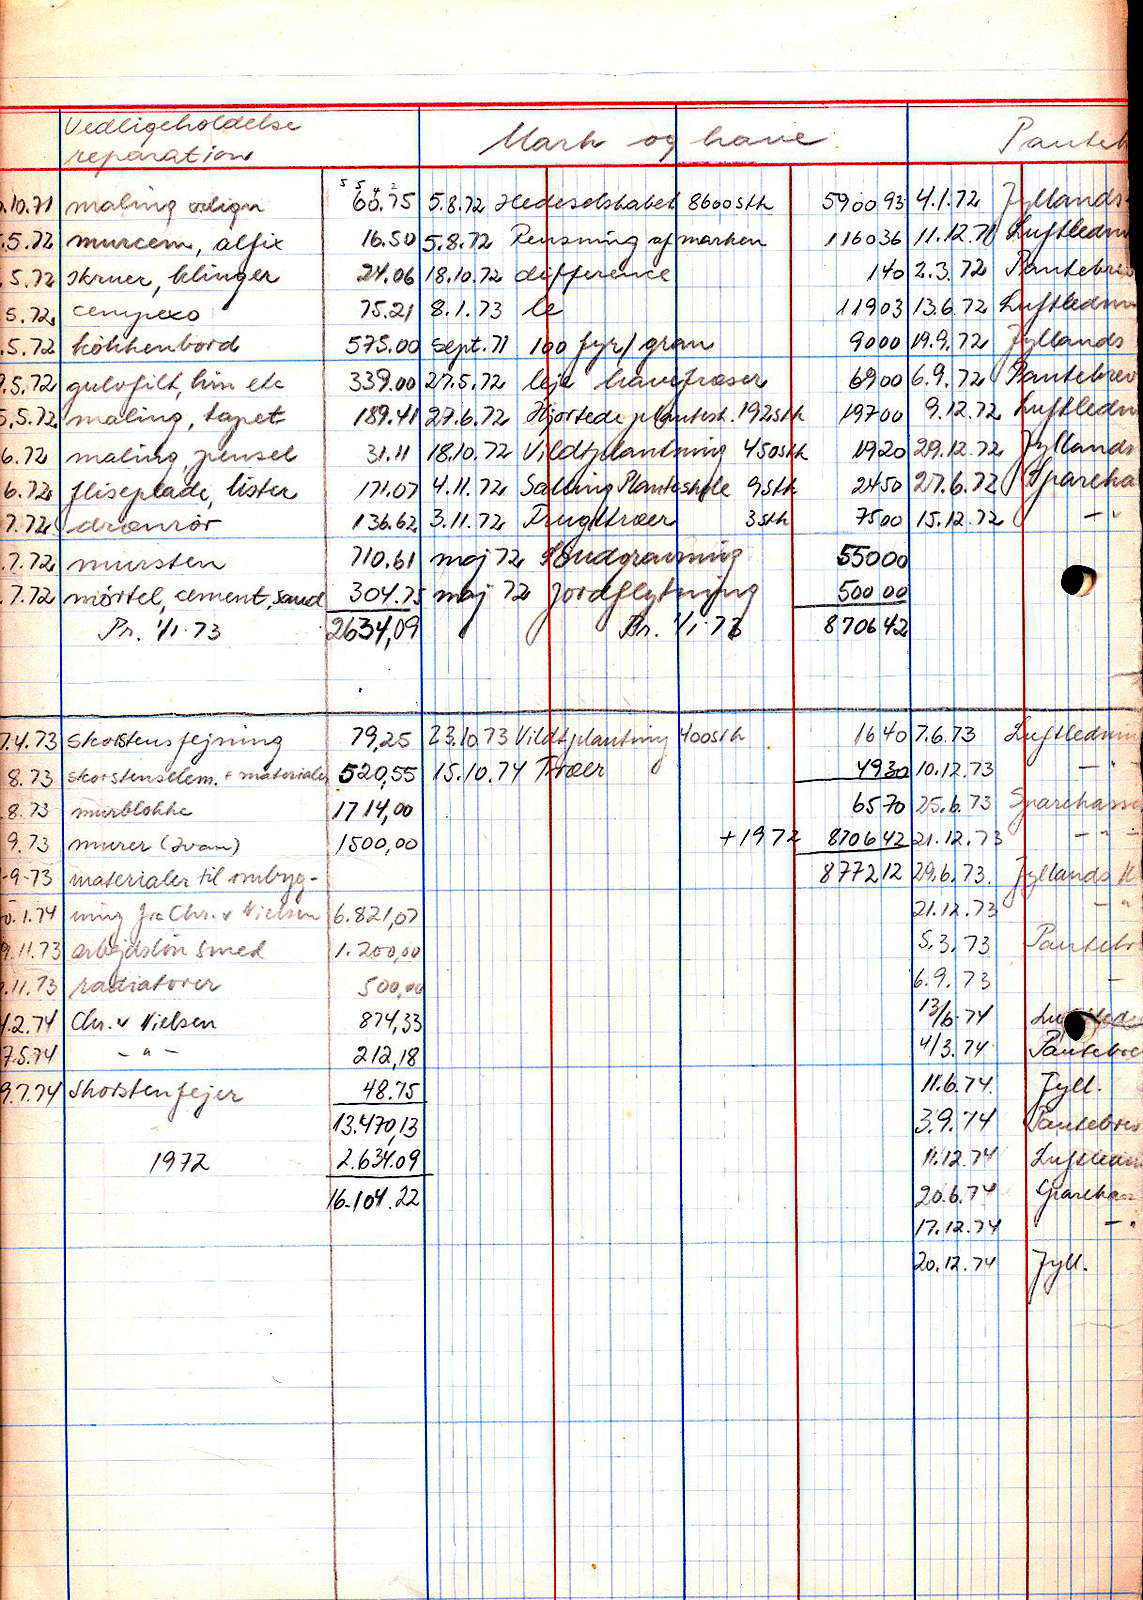 Vedligeholdelse Mark og have Panteb
reparation
.10.71 maling 60.75 5.8.72 Hedeselskabet 8600 stk 5900 93 4.1.72 Jyllands
.5.72 murcem, alfix 16.50 5.8.72 Rensning af marken 1160 36 11.12.71 Luftledn
.5.72 skruer, klinger 24.06 18.10.72 difference 1 40 2.3.72 Pantebrev
5.72 cempexo 75.21 8.1.73 le 119 03 13.6.72 Luftledn
.5.72 køkkenbord 575.00 sept. 71 100 fyr/gran 90 00 19.9.72 Jyllands
.5.72 gulvfilt, lim etc 339.00 27.5.72 leje havefræser 69 00 6.9.72 Pantebrev
5.5.72 maling, tapet 189.41 27.6.72 Hjortede plantesk. 192 stk 197 00 9.12.72 Luftledn
6.72 maling, pensel 31.11 18.10.72 Vildtplantning 450 stk 19 20 29.12.72 Jyllands
6.72 fliseplade, lister 171.07 4.11.72 Salling Planteskole 9 stk 24 50 27.6.72 Spareka
7.72 drænrør 136.62 3.11.72 Frugttræer 3 stk 75 00 15.12.72 - " -
.7.72 mursten 710.61 maj 72 gravning 550 00
.7.72 mörtel, cement, sand 304.75 maj 72 Jordflytning 500 00
Pr. 1/1-73 2634,09 Pr. 1/1-73 8706 42
7.4.73 skorstensfejning 79,25 23.10.73 Vildtplantning 400 stk 16 40 7.6.73 Luftledning
8.73 skorstenselem. + materialer 520,55 15.10.74 Træer 49 30 10.12.73 - " -
8.73 murblokke 1714,00 65 70 25.6.73 Sparekasse
9.73 murer (Ivan) 1500,00 +1972 8706 42 21.12.73 - " -
-9-73 materialer til ombyg- 8772 12 29.6.73. Jyllands K
0.1.74 ning fra Chr. v Nielsen 6.821,07 21.12.73 - " -
9.11.73 arbejdsløn smed 1.200,00 5.3.73 Pantebr
.11.73 radiatorer 500,00 6.9.73 -
4.2.74 Chr. v Nielsen 874,33 13/6-74 Luftled
7.5.74 - " - 212,18 4/3.74 Pantebre
9.7.74 Skorstenfejer 48.75 11.6.74 Jyll.
13.470,13 3.9.74 Pantebre
1972 2.634.09 11.12.74 Luftledn
16.104.22 20.6.74 Sparekas
17.12.74 - "
20.12.74 Jyll.